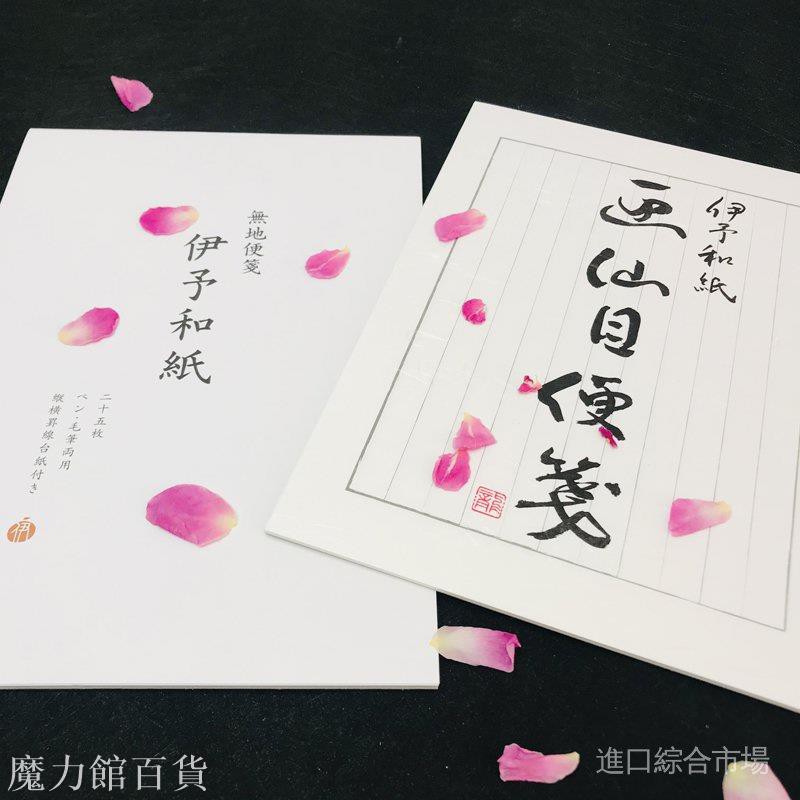 無地便箋
伊予和紙
二十五枚
ペン・毛筆両用
縦横罫線台紙付き
伊
伊予和紙
画仙目便箋
魔力館百貨
進口綜合市場